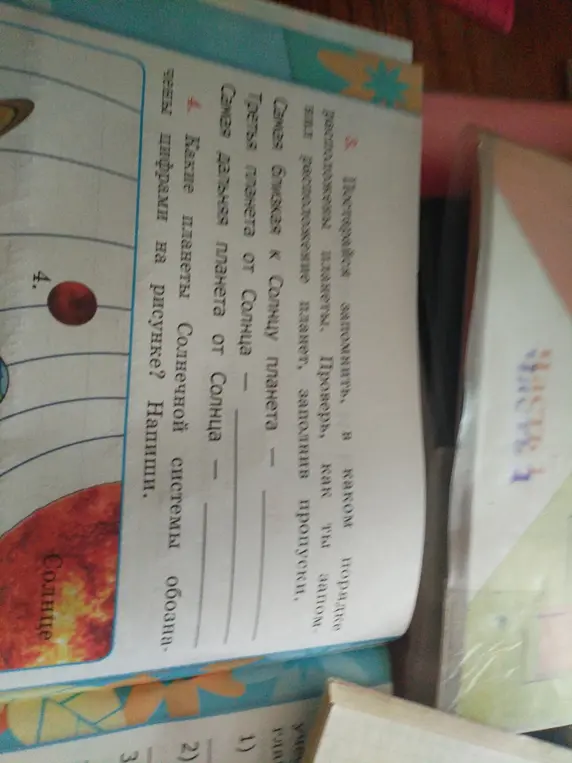 3. Постарайся запомнить, в каком порядке
расположены планеты. Проверь, как ты запом-
нил расположение планет, заполнив пропуски.
Самая близкая к Солнцу планета —
Третья планета от Солнца —
Самая дальняя планета от Солнца —
4. Какие планеты Солнечной системы обозна-
чены цифрами на рисунке? Напиши.
4.
Солнце
1)
2)
3